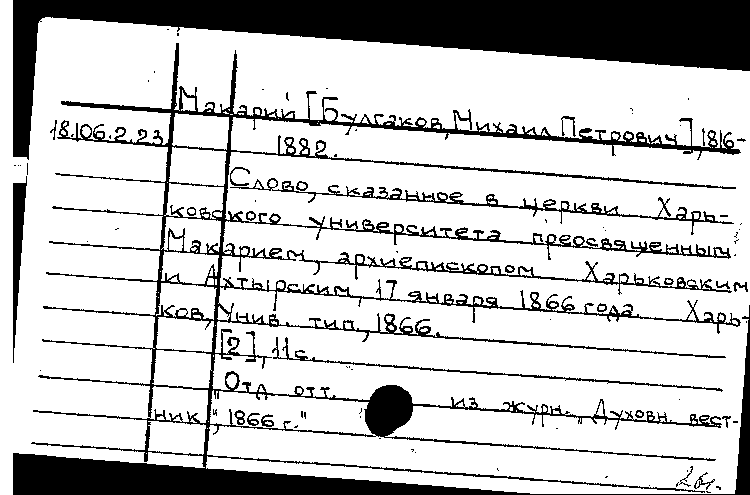 Макарий [Булгаков, Михаил Петрович], 1816-
18.106.2.23 1882.
Слово, сказанное в церкви Харь-
ковского университета преосвященным
Макарием, архиепископом Харьковским
и Ахтырским, 17 января 1866 года. Харь-
ков, Унив. тип., 1866.
[2], 11 с.
"Отд. отт. из журн. „Духовн. вест-
ник", 1866 г."